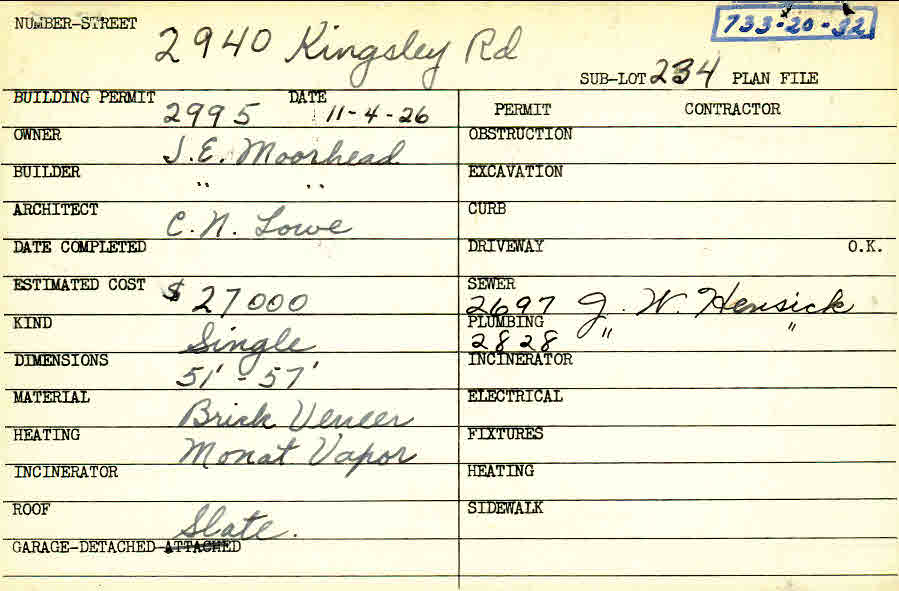 NUMBER-STREET 2940 Kingsley Rd
733-20-32
SUB-LOT 234 PLAN FILE
BUILDING PERMIT 2995 DATE 11-4-26
PERMIT CONTRACTOR
OWNER J.E. Moorhead
OBSTRUCTION
BUILDER " "
EXCAVATION
ARCHITECT C.N. Lowe
CURB
DATE COMPLETED
DRIVEWAY O.K.
ESTIMATED COST $27000
SEWER 2697 J. W. Hensick
KIND Single
PLUMBING 2828 " "
DIMENSIONS 51' - 57'
INCINERATOR
MATERIAL Brick Veneer
ELECTRICAL
HEATING Monat Vapor
FIXTURES
INCINERATOR
HEATING
ROOF Slate.
SIDEWALK
GARAGE-DETACHED-ATTACHED